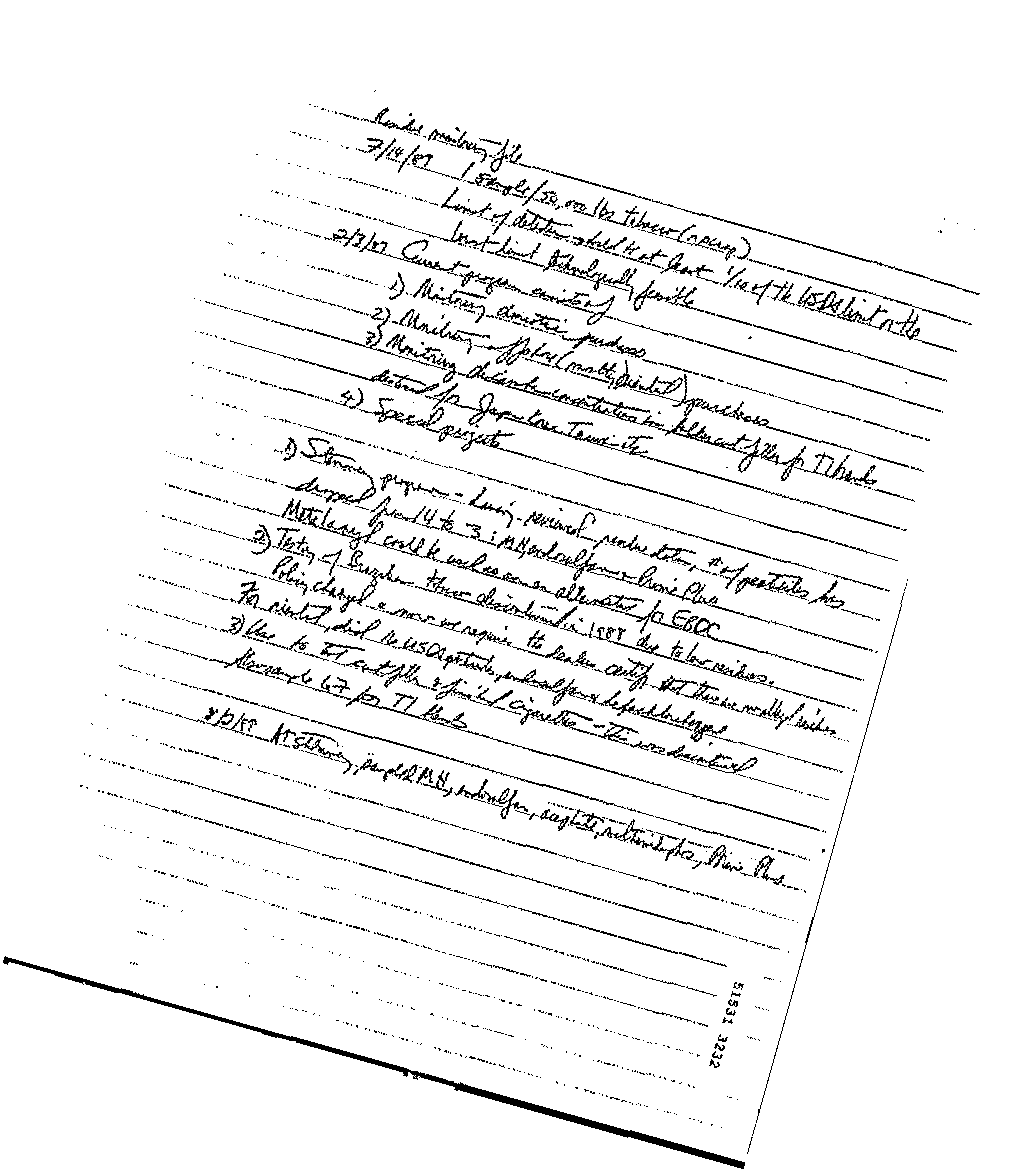 Residue monitoring file
7/14/87 1 sample/50,000 lbs tobacco
Limit of detection should be at least 1/10 of the USDA limit or the
lowest limit technologically feasible
2/3/87 Current program consists of
1) Monitoring domestic purchases
2) Monitoring offshore (mostly oriental) purchases
3) Monitoring concentration in cut filler for TI brands
destined for Japan
4) Special projects
1) Stemmery program - having reviewed residue data, # of pesticides has
dropped from 14 to 3: MH, endosulfan & Prime Plus
Metalaxyl could be used as an alternate for EBDC
2) Testing of Brazilian discontinued in 1988 due to low residues.
Policy changed & now we require the dealers certify that there are no residues
For oriental, did the USDA, endosulfan &
3) Use to test cut filler & finished cigarettes - This was discontinued
for TI brands
At Stemmery, sampled MH, endosulfan, acephate, methamidophos, Prime Plus
51531 3232